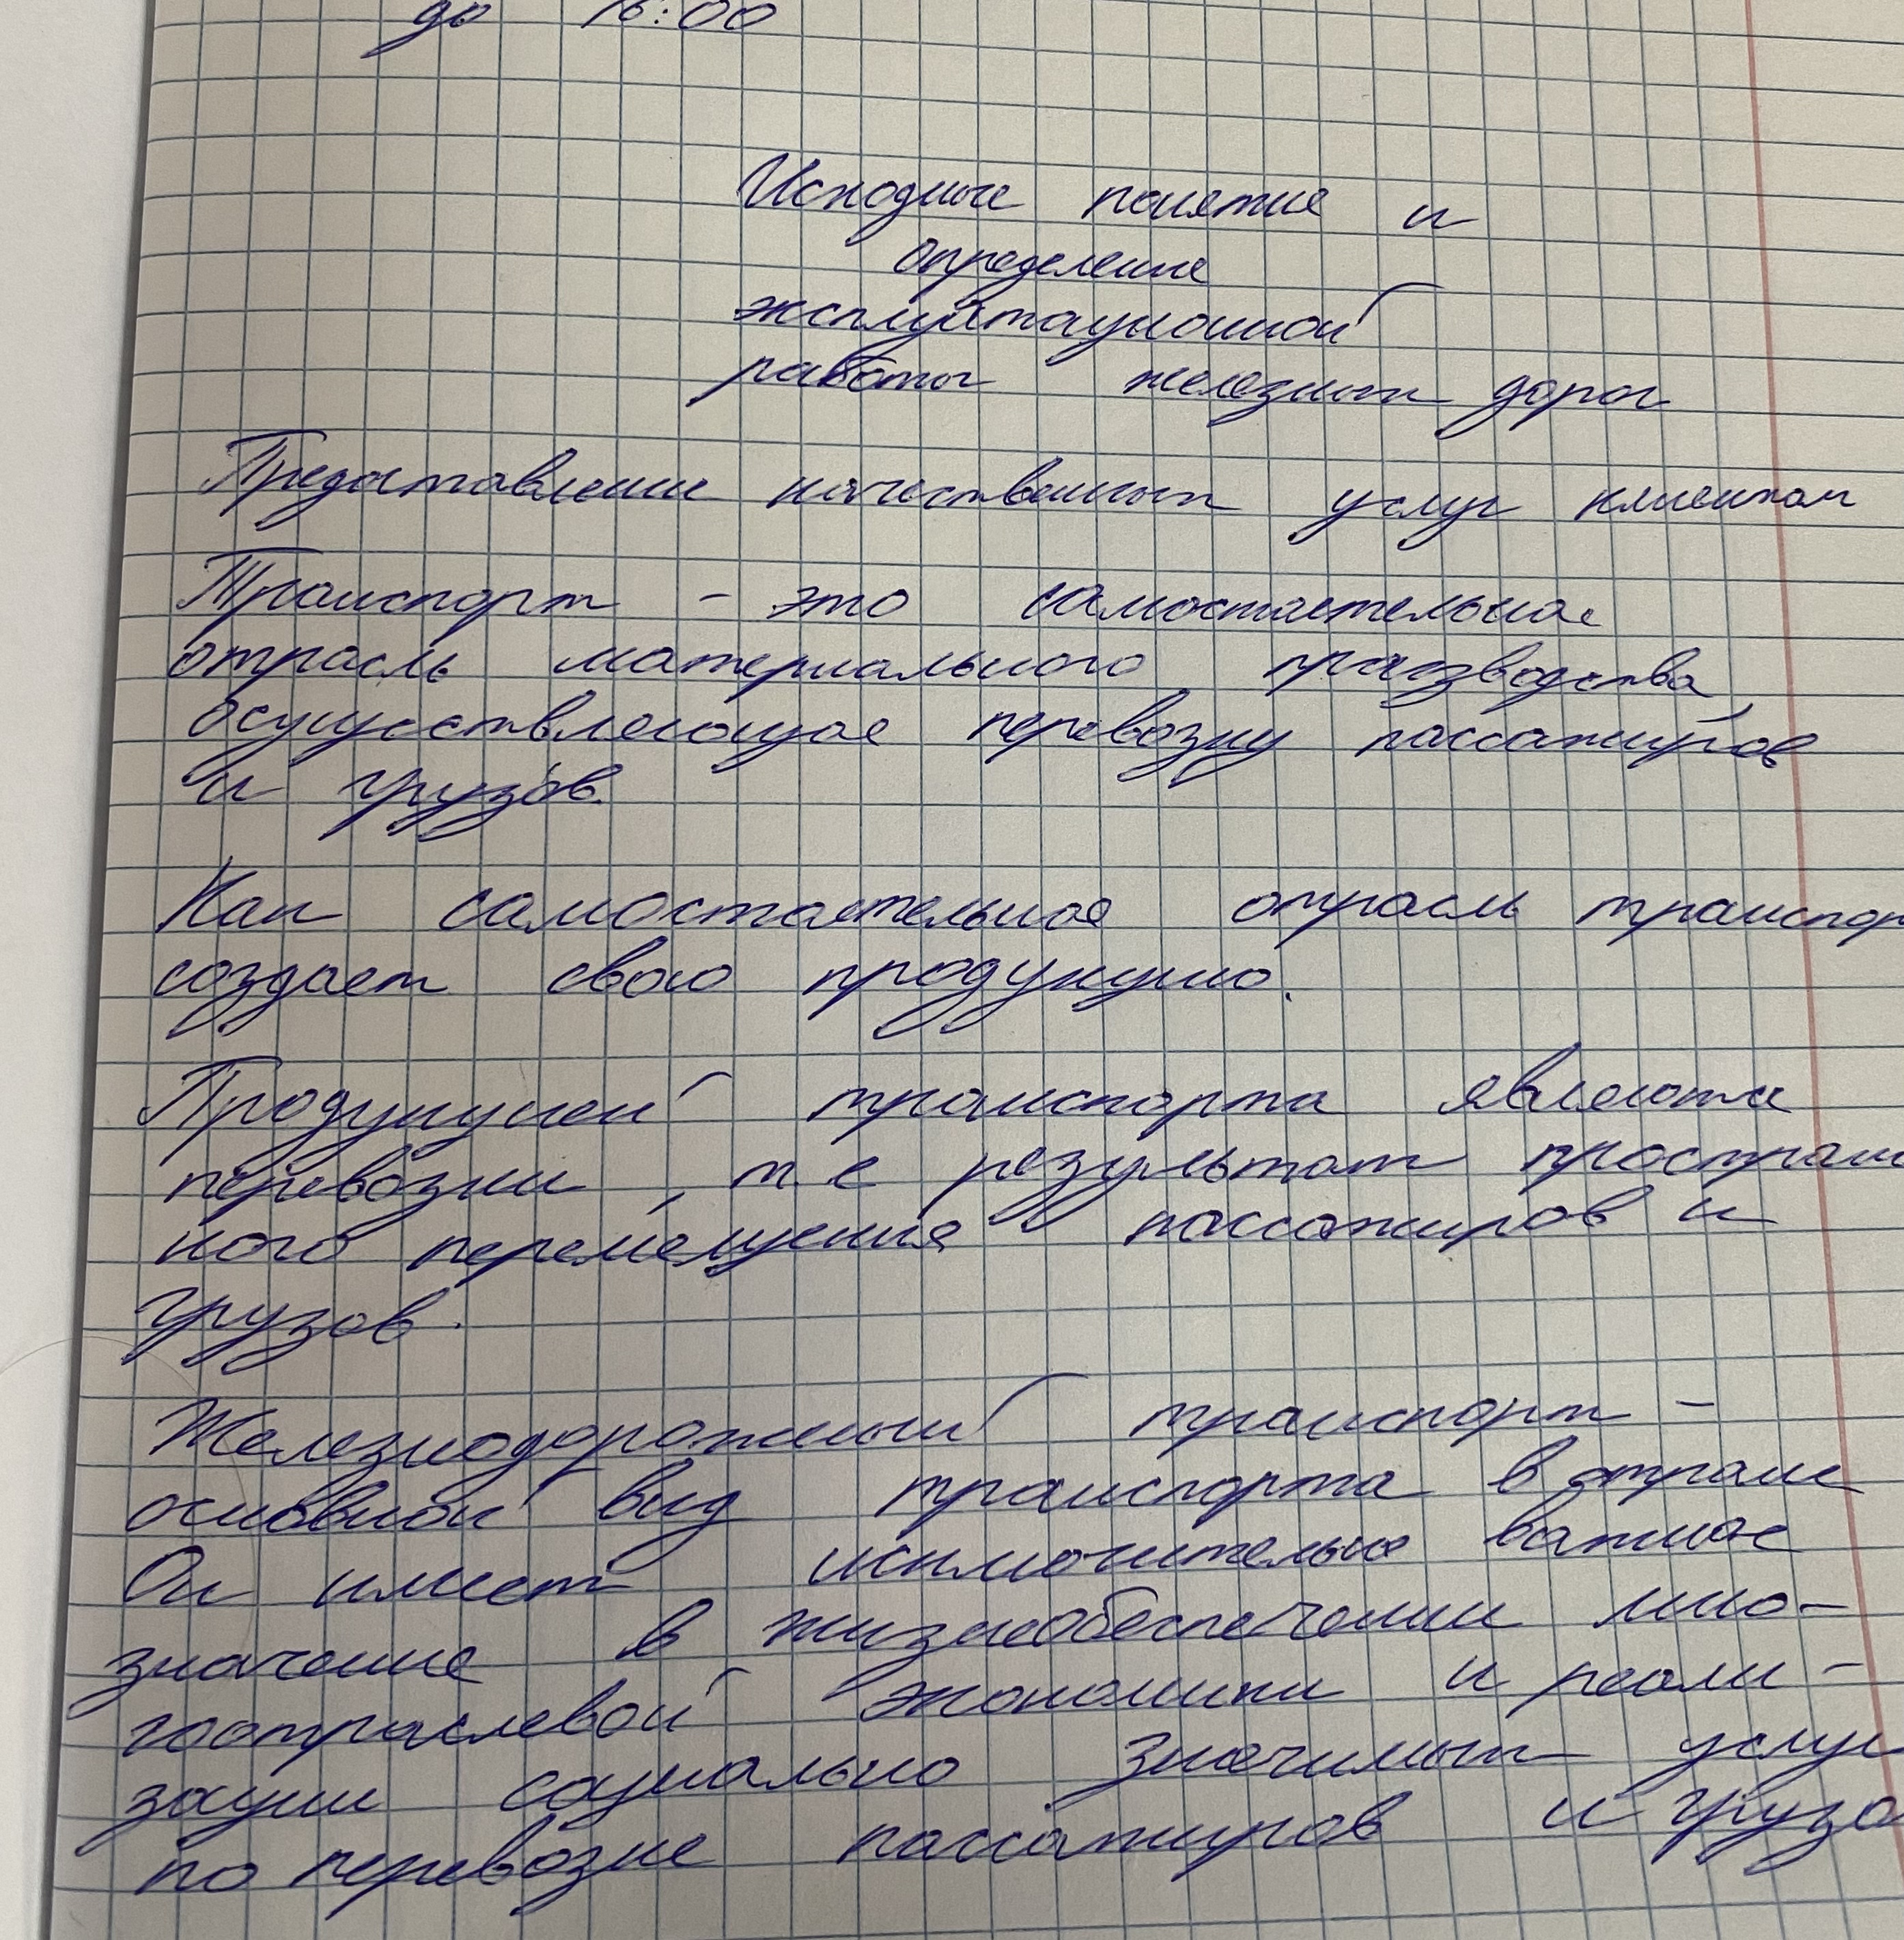 до 16:00
Исходные понятия и
определение
эксплуатационной
работы железных дорог
Предоставление качественных услуг клиентам
Транспорт - это самостоятельная
отрасль материального производства,
осуществляющая перевозку пассажиров
и грузов.
Как самостоятельная отрасль транспор
создает свою продукцию.
Продукцией транспорта являются
перевозки, т.е результат пространс
ного перемещения пассажиров и
грузов.
Железнодорожный транспорт -
основной вид транспорта в стране
Он имеет исключительно важное
значение в жизнеобеспечении мно-
гоотраслевой экономики и реали-
зации социально значимых услуг
по перевозке пассажиров и грузо